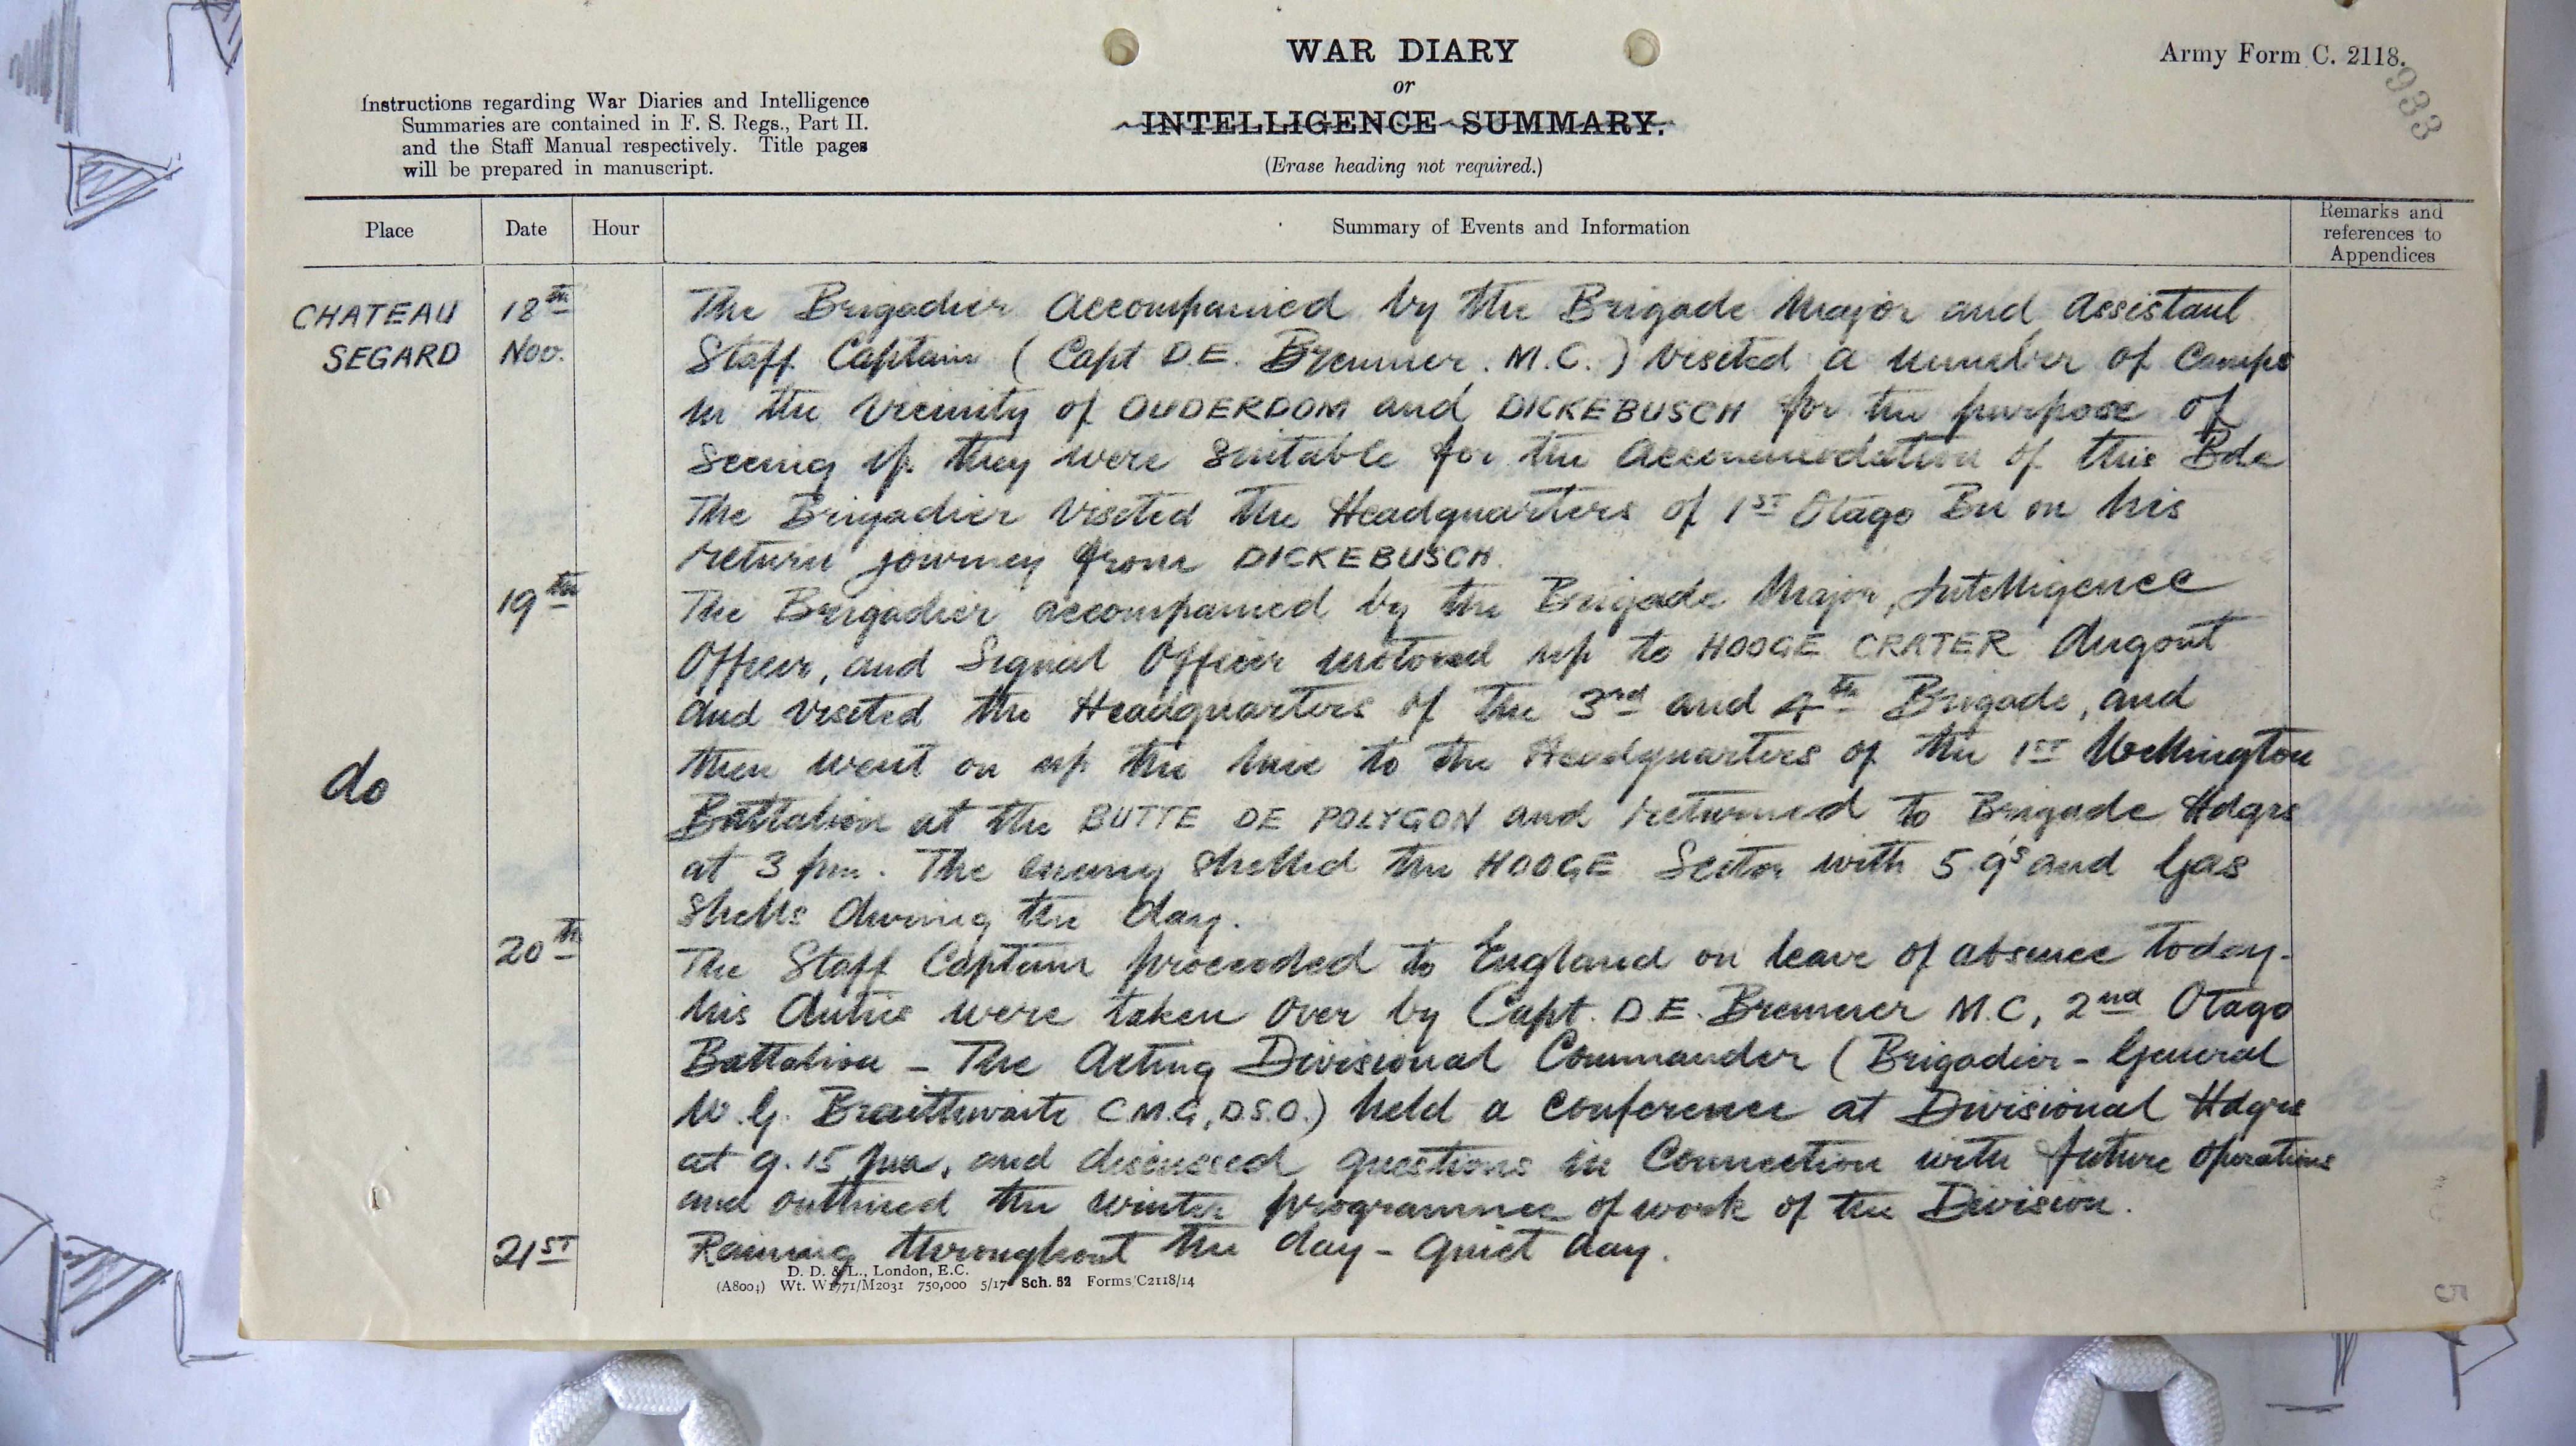 WAR DIARY
or
INTELLIGENCE SUMMARY.
(Erase heading not required.)
Army Form C. 2118.
933
Instructions regarding War Diaries and Intelligence
Summaries are contained in F. S. Regs., Part II.
and the Staff Manual respectively. Title pages
will be prepared in manuscript.
Place Date Hour Summary of Events and Information Remarks and references to Appendices
CHATEAU 18th The Brigadier accompanied by the Brigade Major and Assistant
SEGARD Nov. Staff Captain (Capt D.E. Bremner. M.C.) visited a number of Camps
in the vicinity of OUDERDOM and DICKEBUSCH for the purpose of
seeing if they were suitable for the accommodation of this Bde
The Brigadier visited the Headquarters of 1ST Otago Bn on his
return journey from DICKEBUSCH.
19th The Brigadier accompanied by the Brigade Major, Intelligence
Officer, and Signal Officer motored up to HOOGE CRATER dugout
and visited the Headquarters of the 3rd and 4th Brigade, and
then went on up the line to the Headquarters of the 1ST Wellington
do Battalion at the BUTTE DE POLYGON and returned to Brigade Hdqrs
at 3 pm. The enemy shelled the HOOGE Sector with 5.9s and Gas
shells during the day.
20th The Staff Captain proceeded to England on leave of absence today-
his duties were taken over by Capt. D.E. Bremner M.C, 2nd Otago
Battalion - The Acting Divisional Commander (Brigadier-General
W.G. Braithwaite C.M.G, D.S.O.) held a conference at Divisional Hdqrs
at 9.15 pm, and discussed questions in connection with future operations
and outlined the winter programme of work of the Division.
21ST Raining throughout the day - quiet day.
D. D. & L., London, E.C.
(A8004) Wt. W1771/M2031 750,000 5/17 Sch. 52 Forms/C2118/14